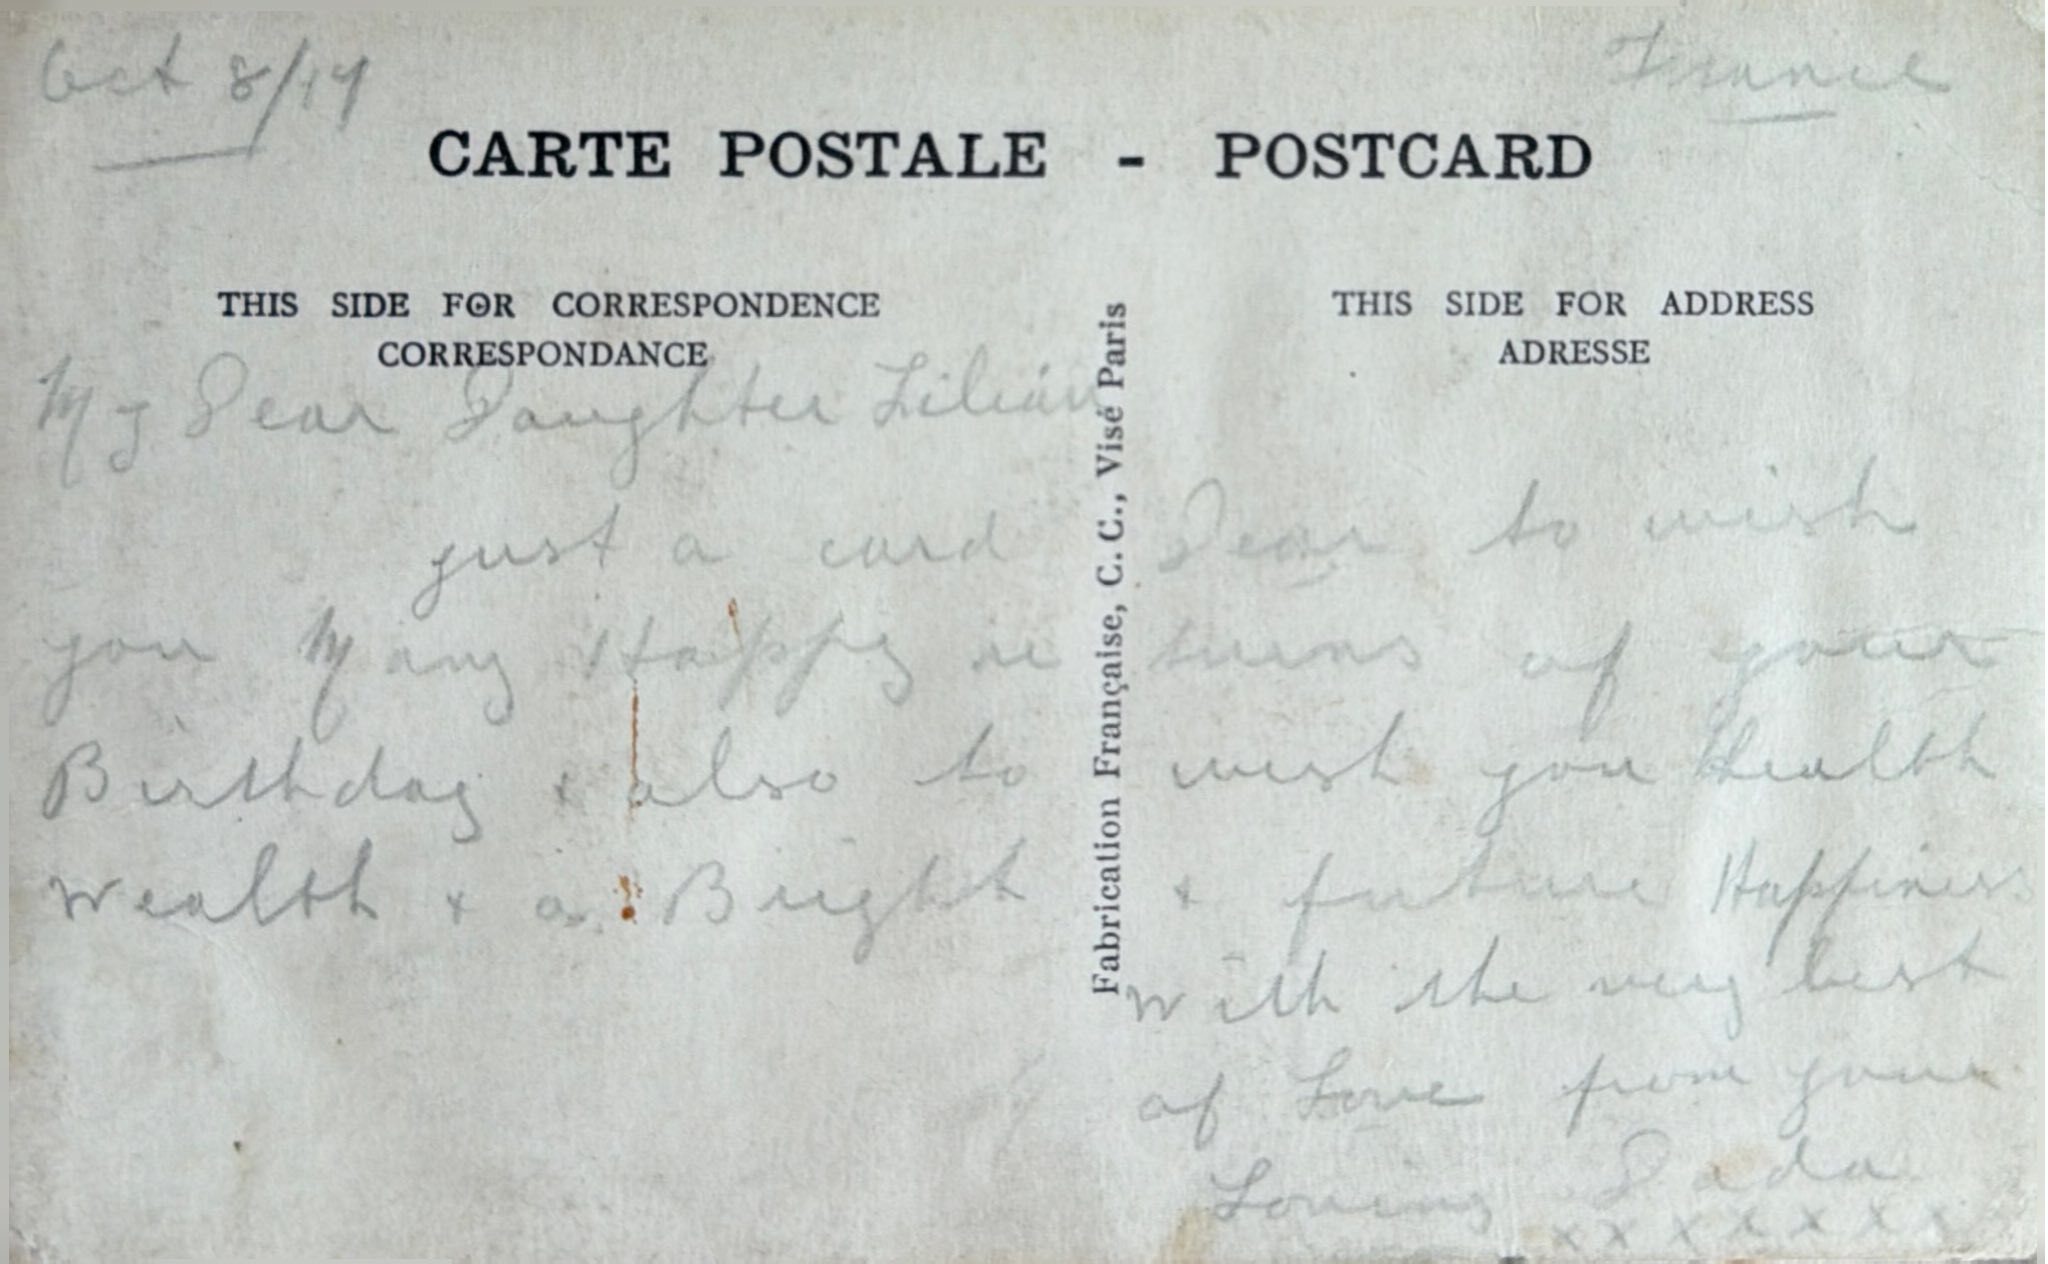 Oct 8/17
France
CARTE POSTALE - POSTCARD
THIS SIDE FOR CORRESPONDENCE
CORRESPONDANCE
THIS SIDE FOR ADDRESS
ADRESSE
Fabrication Française, C. C., Visé Paris
My Dear Daughter Lilian
just a card Dear to wish
you Many Happy re turns of your
Birthday + also to wish you Health
Wealth + a Bright + future Happiness
With the very best
of Love from your
Loving Dada
x x x x x x x